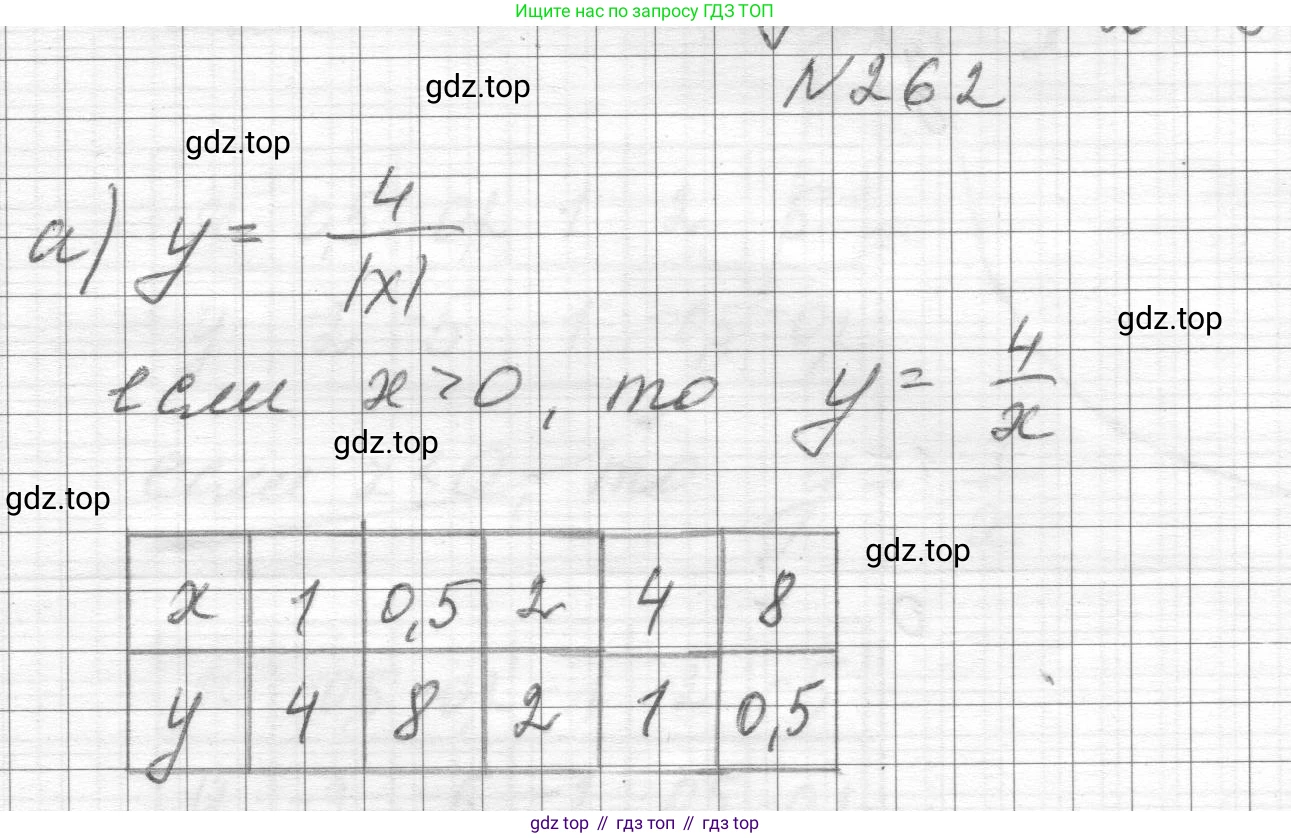 Ищите нас по запросу ГДЗ ТОП
N262
gdz.top
gdz.top
а) y = 4/|x|
gdz.top
если x>0, то y = 4/x
gdz.top
gdz.top
gdz.top
x 1 0,5 2 4 8
y 4 8 2 1 0,5
gdz top // гдз топ // гдз top